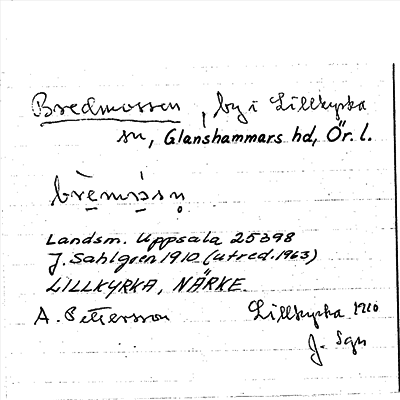 Bredmossen, by i Lillkyrka
sn, Glanshammars hd, Ör. l.
brèmòsn̥
Landsm. Uppsala 25398
J. Sahlgren 1910 (utred. 1963)
LILLKYRKA, NÄRKE.
A. Pettersson
Lillkyrka 1910
J. Sgn